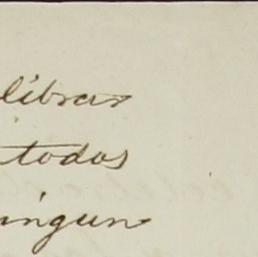 libras
todos
ningun